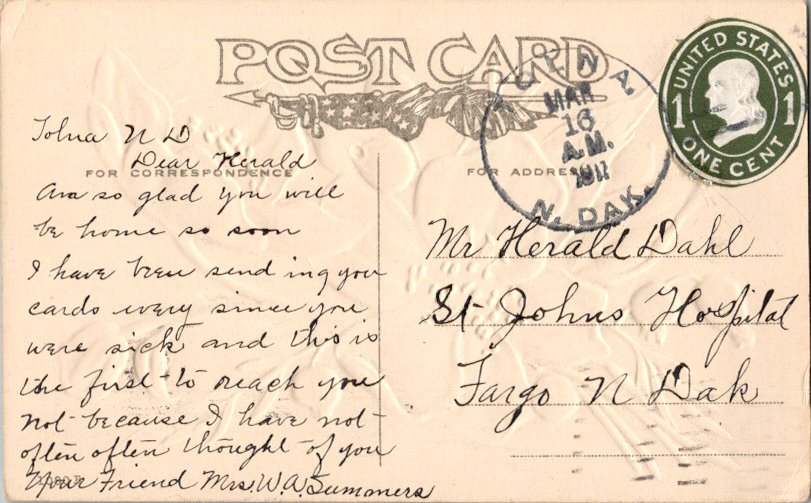 POST CARD
TOLNA
MAR
16
A.M.
1911
N. DAK.
UNITED STATES
1 1
ONE CENT
FOR CORRESPONDENCE
FOR ADDRESS
Tolna N D
Dear Herald
Am so glad you will
be home so soon
I have been sending you
cards every since you
were sick and this is
the first to reach you
not because I have not
often often thought of you
Your Friend Mrs. W. A. Summers
Mr Herald Dahl
St Johns Hospital
Fargo N Dak